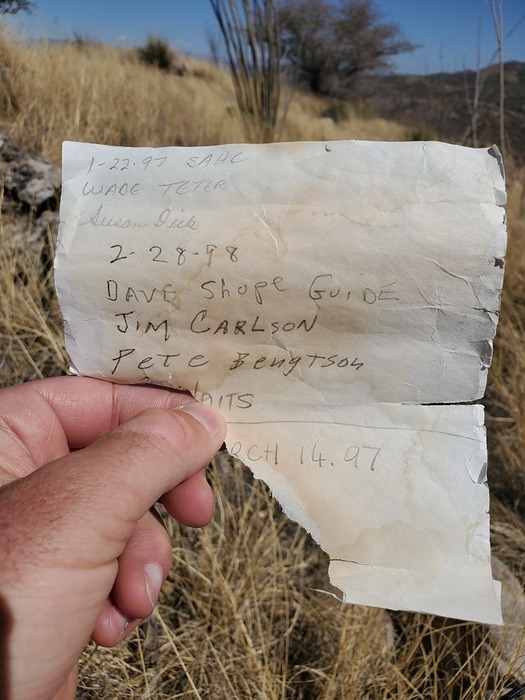 1-22-97 SAHC
WADE TETER
Susan Dick
2-28-98
DAVE Shope GUIDE
JIM CARLSON
PETE Bengtson
AITS
RCH 14.97